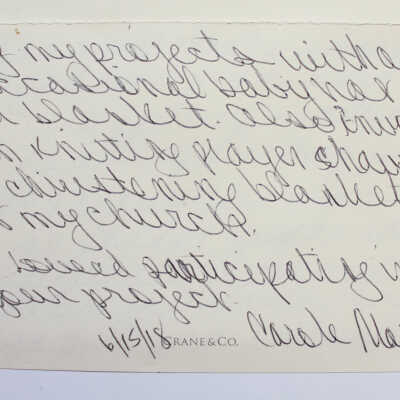 my projects with a
occasional baby hat
blanket. also invo
knitting prayer shawl
christening blanket
my church.
loved participating in
your project.
6/15/18 CRANE & CO. Carole Ma